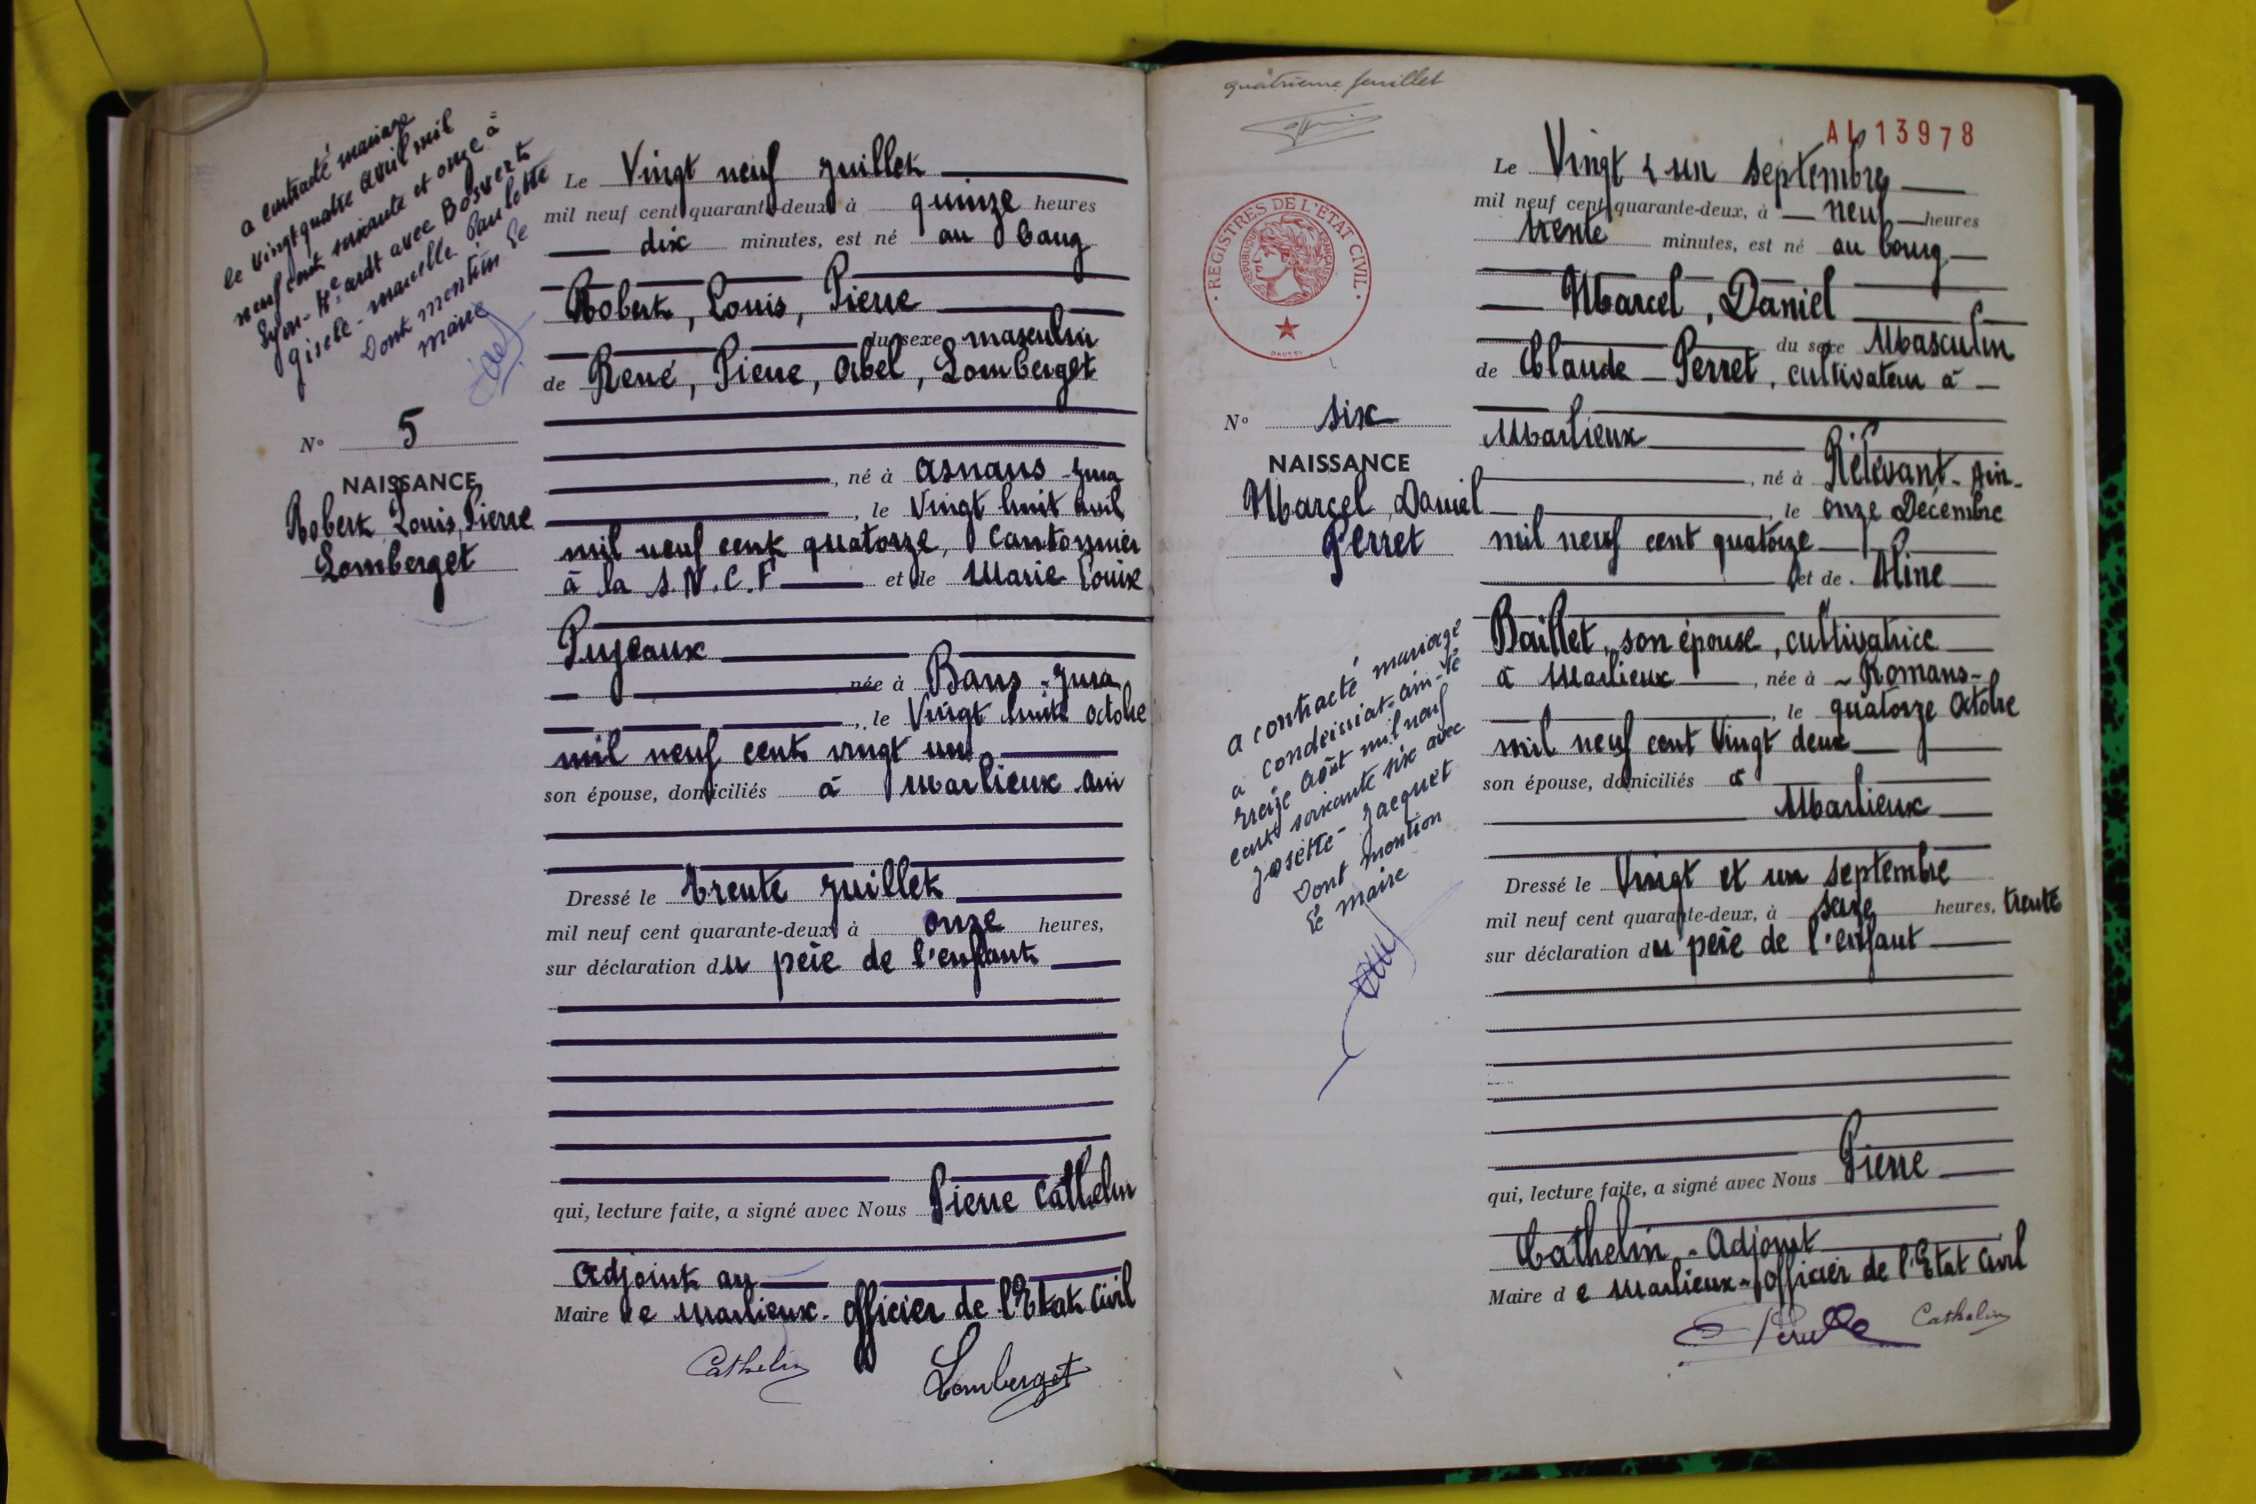 a contracté mariage
le vingt quatre avril mil
neuf cent soixante et onze à
Lyon - 4e ardt avec Bosvert
Gisèle - marcelle Paulette
Dont mention Le
maire
N° 5
NAISSANCE
Robert, Louis, Pierre
Lomberget
Le Vingt neuf Juillet
mil neuf cent quarante-deux, à quinze heures
dix minutes, est né au bourg
Robert, Louis, Pierre
du sexe masculin
de René, Pierre, Abel, Lomberget
, né à Asnans - Jura
, le Vingt huit Avril
mil neuf cent quatorze, Cantonnier
à la S.N.C.F et de Marie Louise
Pujeaux
née à Bans - Jura
, le Vingt huit octobre
mil neuf cent vingt un
son épouse, domiciliés à Marlieux Ain
Dressé le trente Juillet
mil neuf cent quarante-deux, à onze heures,
sur déclaration du père de l'enfant
qui, lecture faite, a signé avec Nous Pierre Cathelin
Adjoint au
Maire de Marlieux - officier de l'Etat Civil
Cathelin Lomberget
quatrième feuillet
AL 13978
REGISTRES DE L'ÉTAT CIVIL
RÉPUBLIQUE FRANÇAISE
N° six
NAISSANCE
Marcel, Daniel
Perret
a contracté mariage
à Condeissiat - ain - le
treize Août mil neuf
cent soixante six avec
Josette - Jacquet
Dont mention
Le maire
Le Vingt & un septembre
mil neuf cent quarante-deux, à neuf heures
trente minutes, est né au bourg
Marcel, Daniel
du sexe Masculin
de Claude Perret, cultivateur à
Marlieux
, né à Rélevant - Ain -
, le onze Décembre
mil neuf cent quatorze
et de Aline
Baillet, son épouse, cultivatrice
à Marlieux , née à - Romans -
, le quatorze Octobre
mil neuf cent Vingt deux
son épouse, domiciliés à
Marlieux
Dressé le Vingt et un septembre
mil neuf cent quarante-deux, à seize heures, trente
sur déclaration du père de l'enfant
qui, lecture faite, a signé avec Nous Pierre
Cathelin - Adjoint
Maire de Marlieux - officier de l'Etat Civil
Cathelin